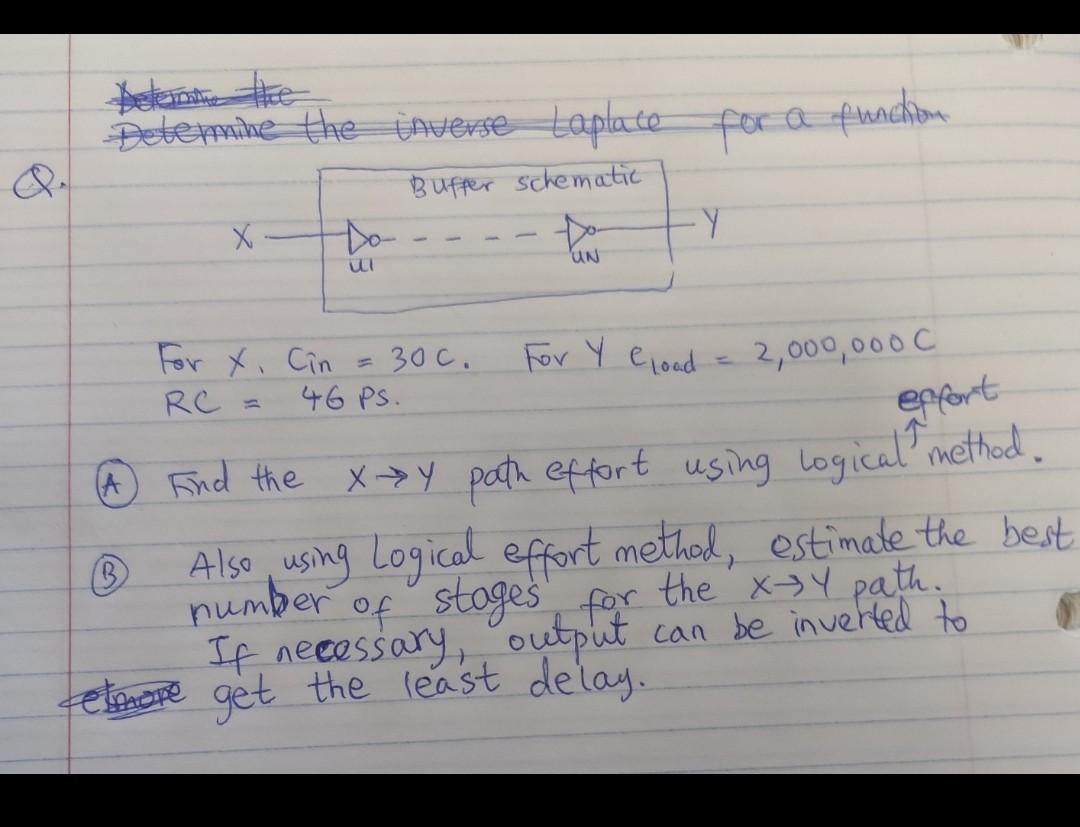 Determine the
Determine the inverse Laplace for a function
Q.
Buffer schematic
X
Y
U1
UN
For X, Cin = 30C. For Y Cload = 2,000,000C
RC = 46 PS.
effort
(A) Find the X→Y path effort using logical method.
(B) Also using Logical effort method, estimate the best
number of stages for the X→Y path.
If necessary, output can be inverted to
get the least delay.